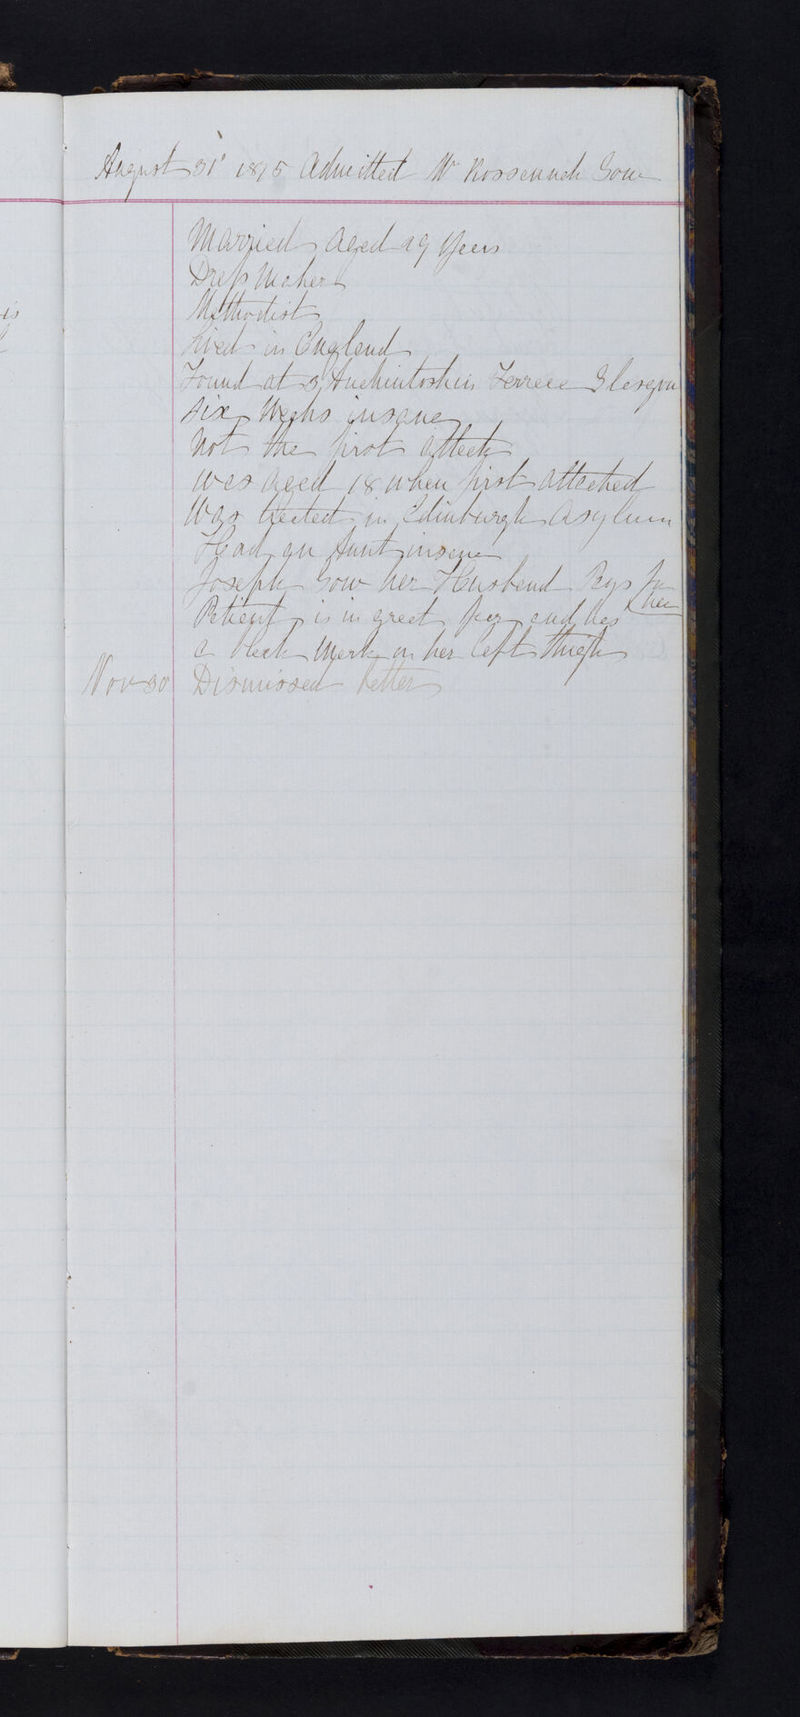 August 31st 1875 Admitted Mrs Gow
Married aged 29 Years
Dress Maker
Methodist
Lived in England
Found at 3 Auchintoshin Terrece Glesgow
six Weeks insane
Not the first atteck
was aged 18 when first attecked
Was treeted in Edinburgh Asylum
Had an Aunt insane
Joseph Gow her Husbend Pays for
her
Patient is in greet feer and hes
a bleck Merk on her left thigh
Nov 30 Dismissed better